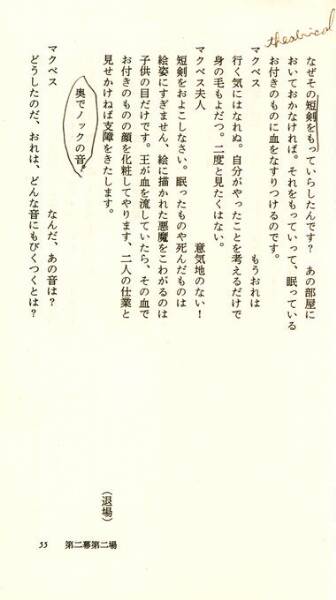 theatrical
なぜその短剣をもっていらしたんです? あの部屋に
おいておかなければ。それをもっていって、眠っている
お付きのものに血をなすりつけるのです。
マクベス　　　　　　　　　　　　もうおれは
行く気にはなれぬ。自分がやったことを考えるだけで
身の毛もよだつ。二度と見たくはない。
マクベス夫人　　　　　　　　　　意気地のない!
短剣をおよこしなさい。眠ったものや死んだものは
絵姿にすぎません、絵に描かれた悪魔をこわがるのは
子供の目だけです。王が血を流していたら、その血で
お付きのものの顔を化粧してやります、二人の仕業と
見せかけねば支障をきたします。　　　　　(退場)
奥でノックの音。
マクベス　　　　　　　　　　なんだ、あの音は?
どうしたのだ、おれは、どんな音にもびくつくとは?
55 第二幕第二場